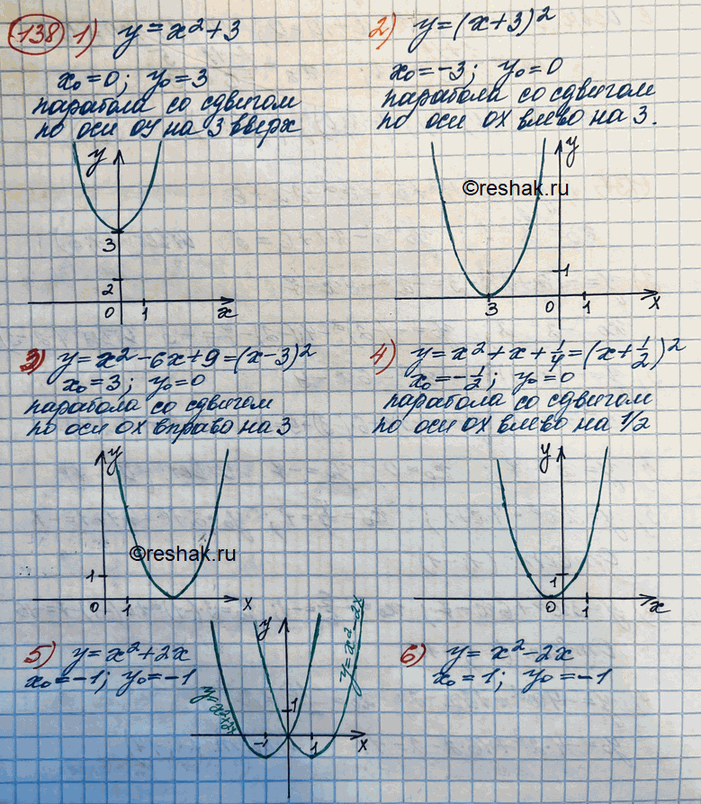 138 1) y = x² + 3
x₀ = 0; y₀ = 3
парабола со сдвигом
по оси oy на 3 вверх
y
3
2
0 1 x
2) y = (x+3)²
x₀ = -3; y₀ = 0
парабола со сдвигом
по оси ox влево на 3.
y
©reshak.ru
1
3 0 1 x
3) y = x² - 6x + 9 = (x-3)²
x₀ = 3; y₀ = 0
парабола со сдвигом
по оси ox вправо на 3
y
©reshak.ru
1
0 1 x
4) y = x² + x + 1/4 = (x + 1/2)²
x₀ = -1/2; y₀ = 0
парабола со сдвигом
по оси ox влево на 1/2
y
1
0 1 x
5) y = x² + 2x
x₀ = -1; y₀ = -1
y
y = x² - 2x
1
-1 1 x
6) y = x² - 2x
x₀ = 1; y₀ = -1